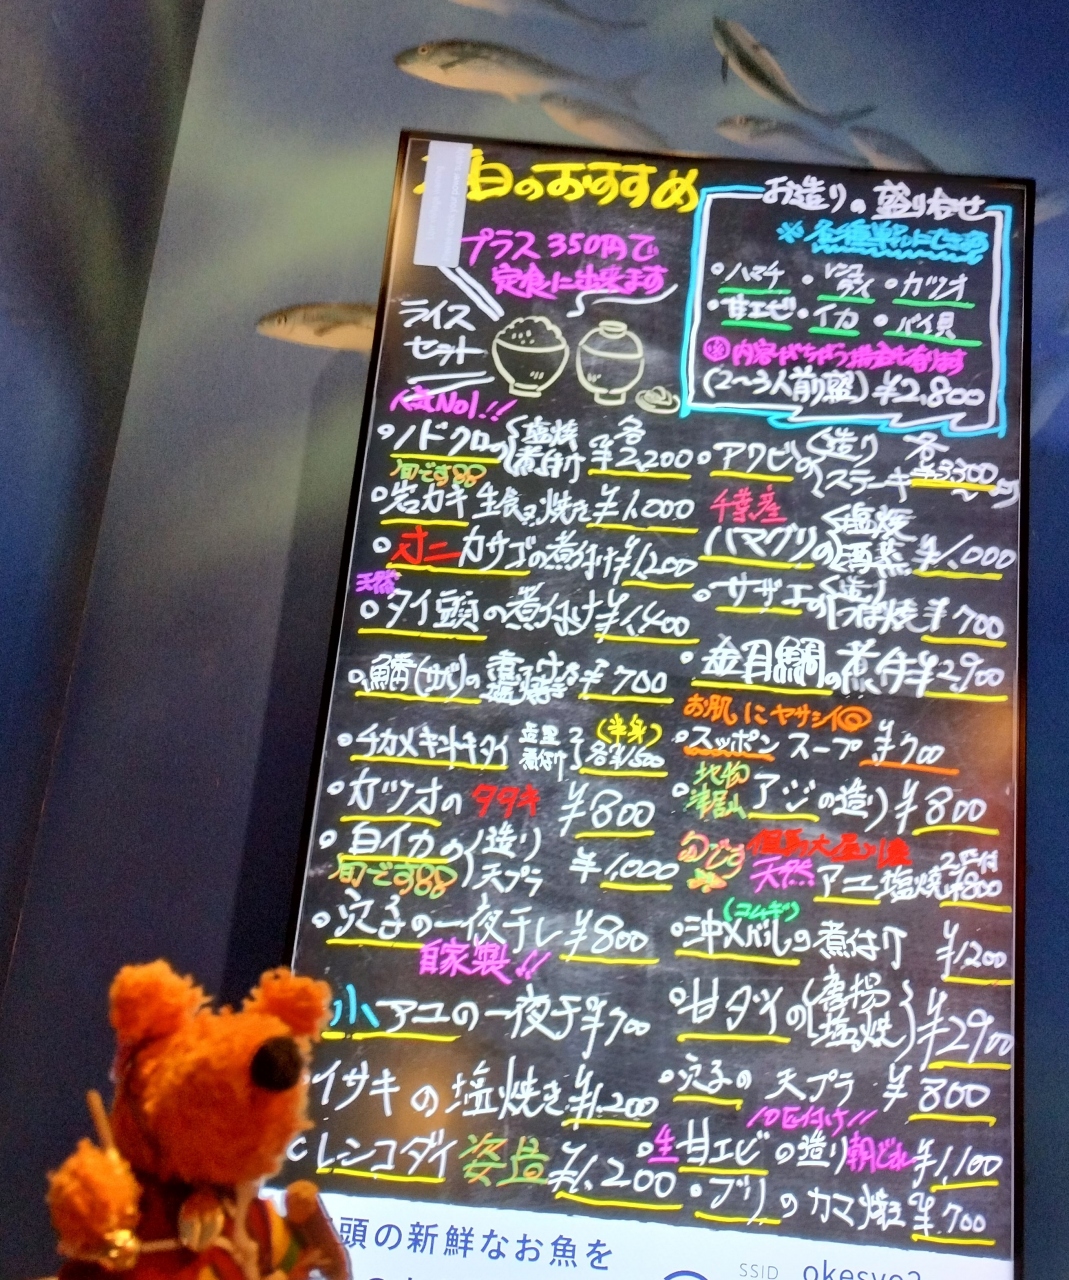 本日のおすすめ
プラス350円で
定食に出来ます
ライス
セット
お造りの盛り合せ
・ハマチ ・レンコダイ ・カツオ
・甘エビ ・イカ ・バイ貝
(2〜3人前) ¥2,800
人気No1!!
・ノドクロの{塩焼 煮付け 各¥2,200
旬です
・岩カキ 生 焼き ¥1,000
・オニカサゴの煮付け ¥1,200
天然
・タイ頭の煮付け ¥1,400
¥700
・チカメキントキダイ 煮付け (半身) 各¥1,500
・カツオのタタキ ¥800
・白イカの(造り 天プラ ¥1,000
旬です
・穴子の一夜干し ¥800
自家製!!
小アユの一夜干 ¥700
イサキの塩焼き ¥1,200
・レンコダイ姿造 ¥1,200
・アワビの{造り ステーキ 各¥3,300
千葉産
ハマグリの{塩焼 酒蒸 ¥1,000
・サザエの{造り つぼ焼 ¥700
・金目鯛の煮付 ¥2,900
お肌にヤサシイ
・スッポンスープ ¥700
地物
津居山
・アジの造り ¥800
旬です
天然アユ塩焼 2匹付 ¥800
・沖メバルの煮付け ¥1,200
・甘ダイの{唐揚 塩焼} ¥2,900
・穴子の天プラ ¥800
10匹付け!!
・生甘エビの造り 朝どれ ¥1,100
・ブリのカマ焼 ¥700
頭の新鮮なお魚を
SSID